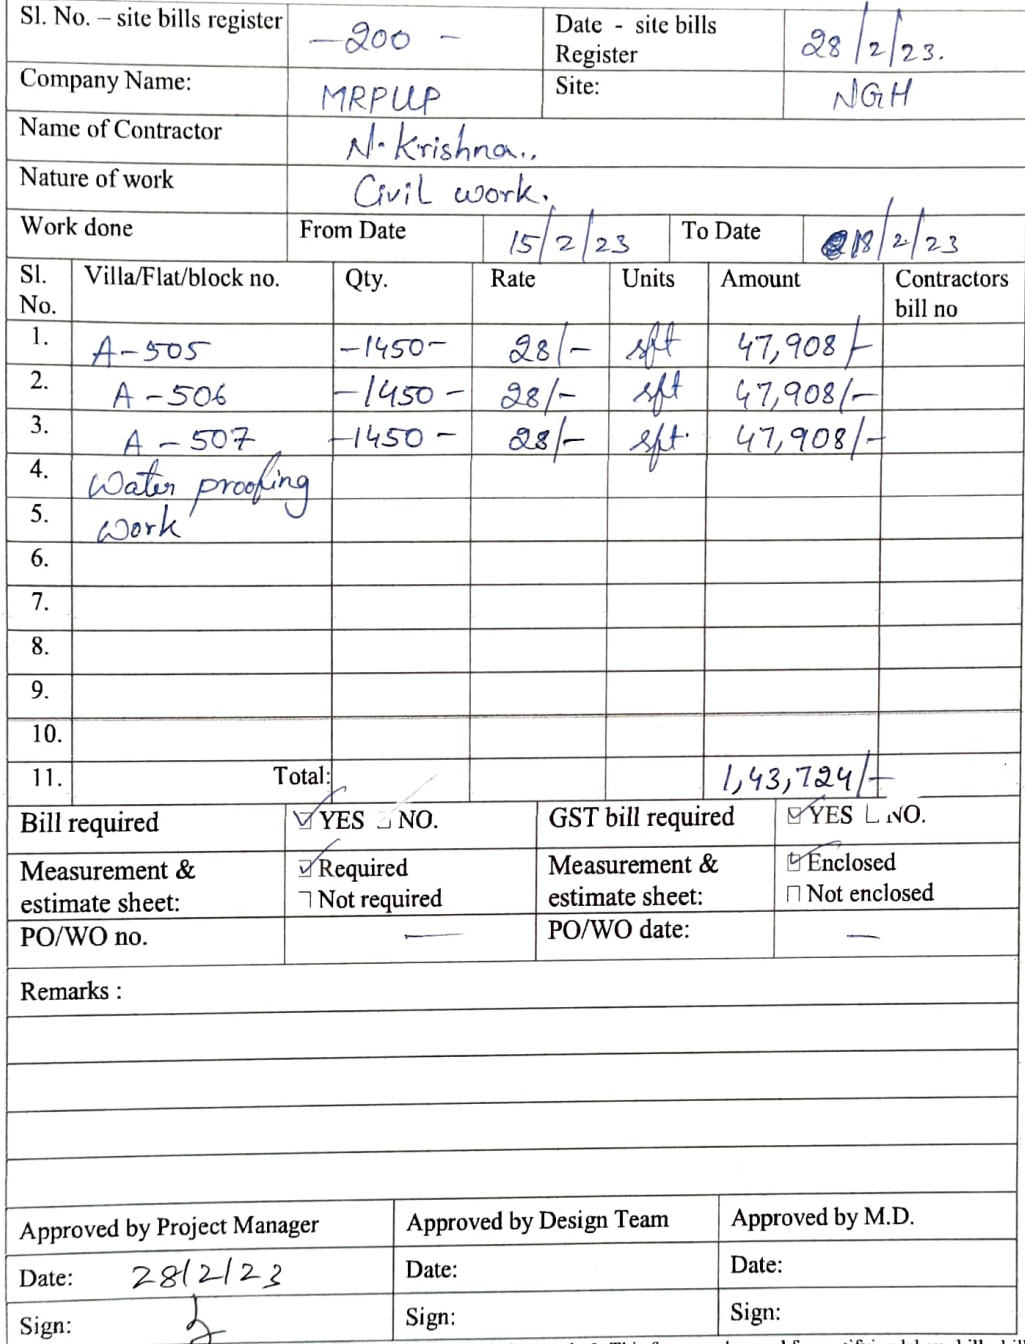 Sl. No. – site bills register -200 - Date - site bills Register 28/2/23.
Company Name: MRPUP Site: NGH
Name of Contractor N. Krishna..
Nature of work Civil work.
Work done From Date 15/2/23 To Date 18/2/23
Sl. No. Villa/Flat/block no. Qty. Rate Units Amount Contractors bill no
1. A-505 -1450- 28/- sft 47,908/-
2. A-506 -1450- 28/- sft 47,908/-
3. A-507 -1450- 28/- sft. 47,908/-
4. Water proofing
5. work
6.
7.
8.
9.
10.
11. Total: 1,43,724/-
Bill required YES NO. GST bill required YES NO.
Measurement & estimate sheet: Required Not required Measurement & estimate sheet: Enclosed Not enclosed
PO/WO no. — PO/WO date: —
Remarks :
Approved by Project Manager Approved by Design Team Approved by M.D.
Date: 28/2/23 Date: Date:
Sign: Sign: Sign: